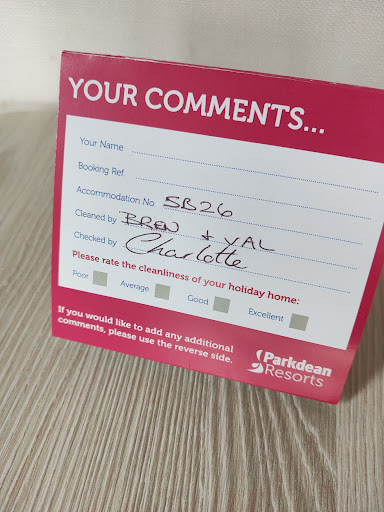 YOUR COMMENTS...
Your Name
Booking Ref.
Accommodation No SB26
Cleaned by BREN + VAL
Checked by Charlotte
Please rate the cleanliness of your holiday home:
Poor Average Good Excellent
If you would like to add any additional
comments, please use the reverse side.
Parkdean
Resorts